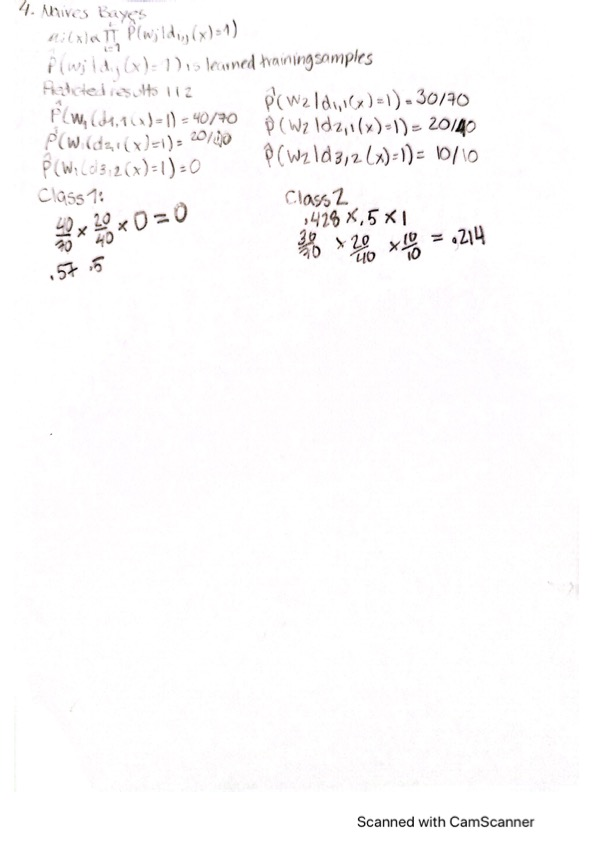 4. Naives Bayes
P(wj|di,j(x)=1)
P̂(wj|di,j(x)=1) is learned training samples
Predicted results 1 1 2
P̂(w1(d1,1(x)=1) = 40/70
P̂(w1(d2,1(x)=1) = 20/40
P̂(w1(d3,2(x)=1) = 0
P̂(w2|d1,1(x)=1) = 30/70
P̂(w2|d2,1(x)=1) = 20/40
P̂(w2|d3,2(x)=1) = 10/10
Class 1:
40/70 × 20/40 × 0 = 0
.57 .5
Class 2
.428 × .5 × 1
30/70 × 20/40 × 10/10 = .214
Scanned with CamScanner